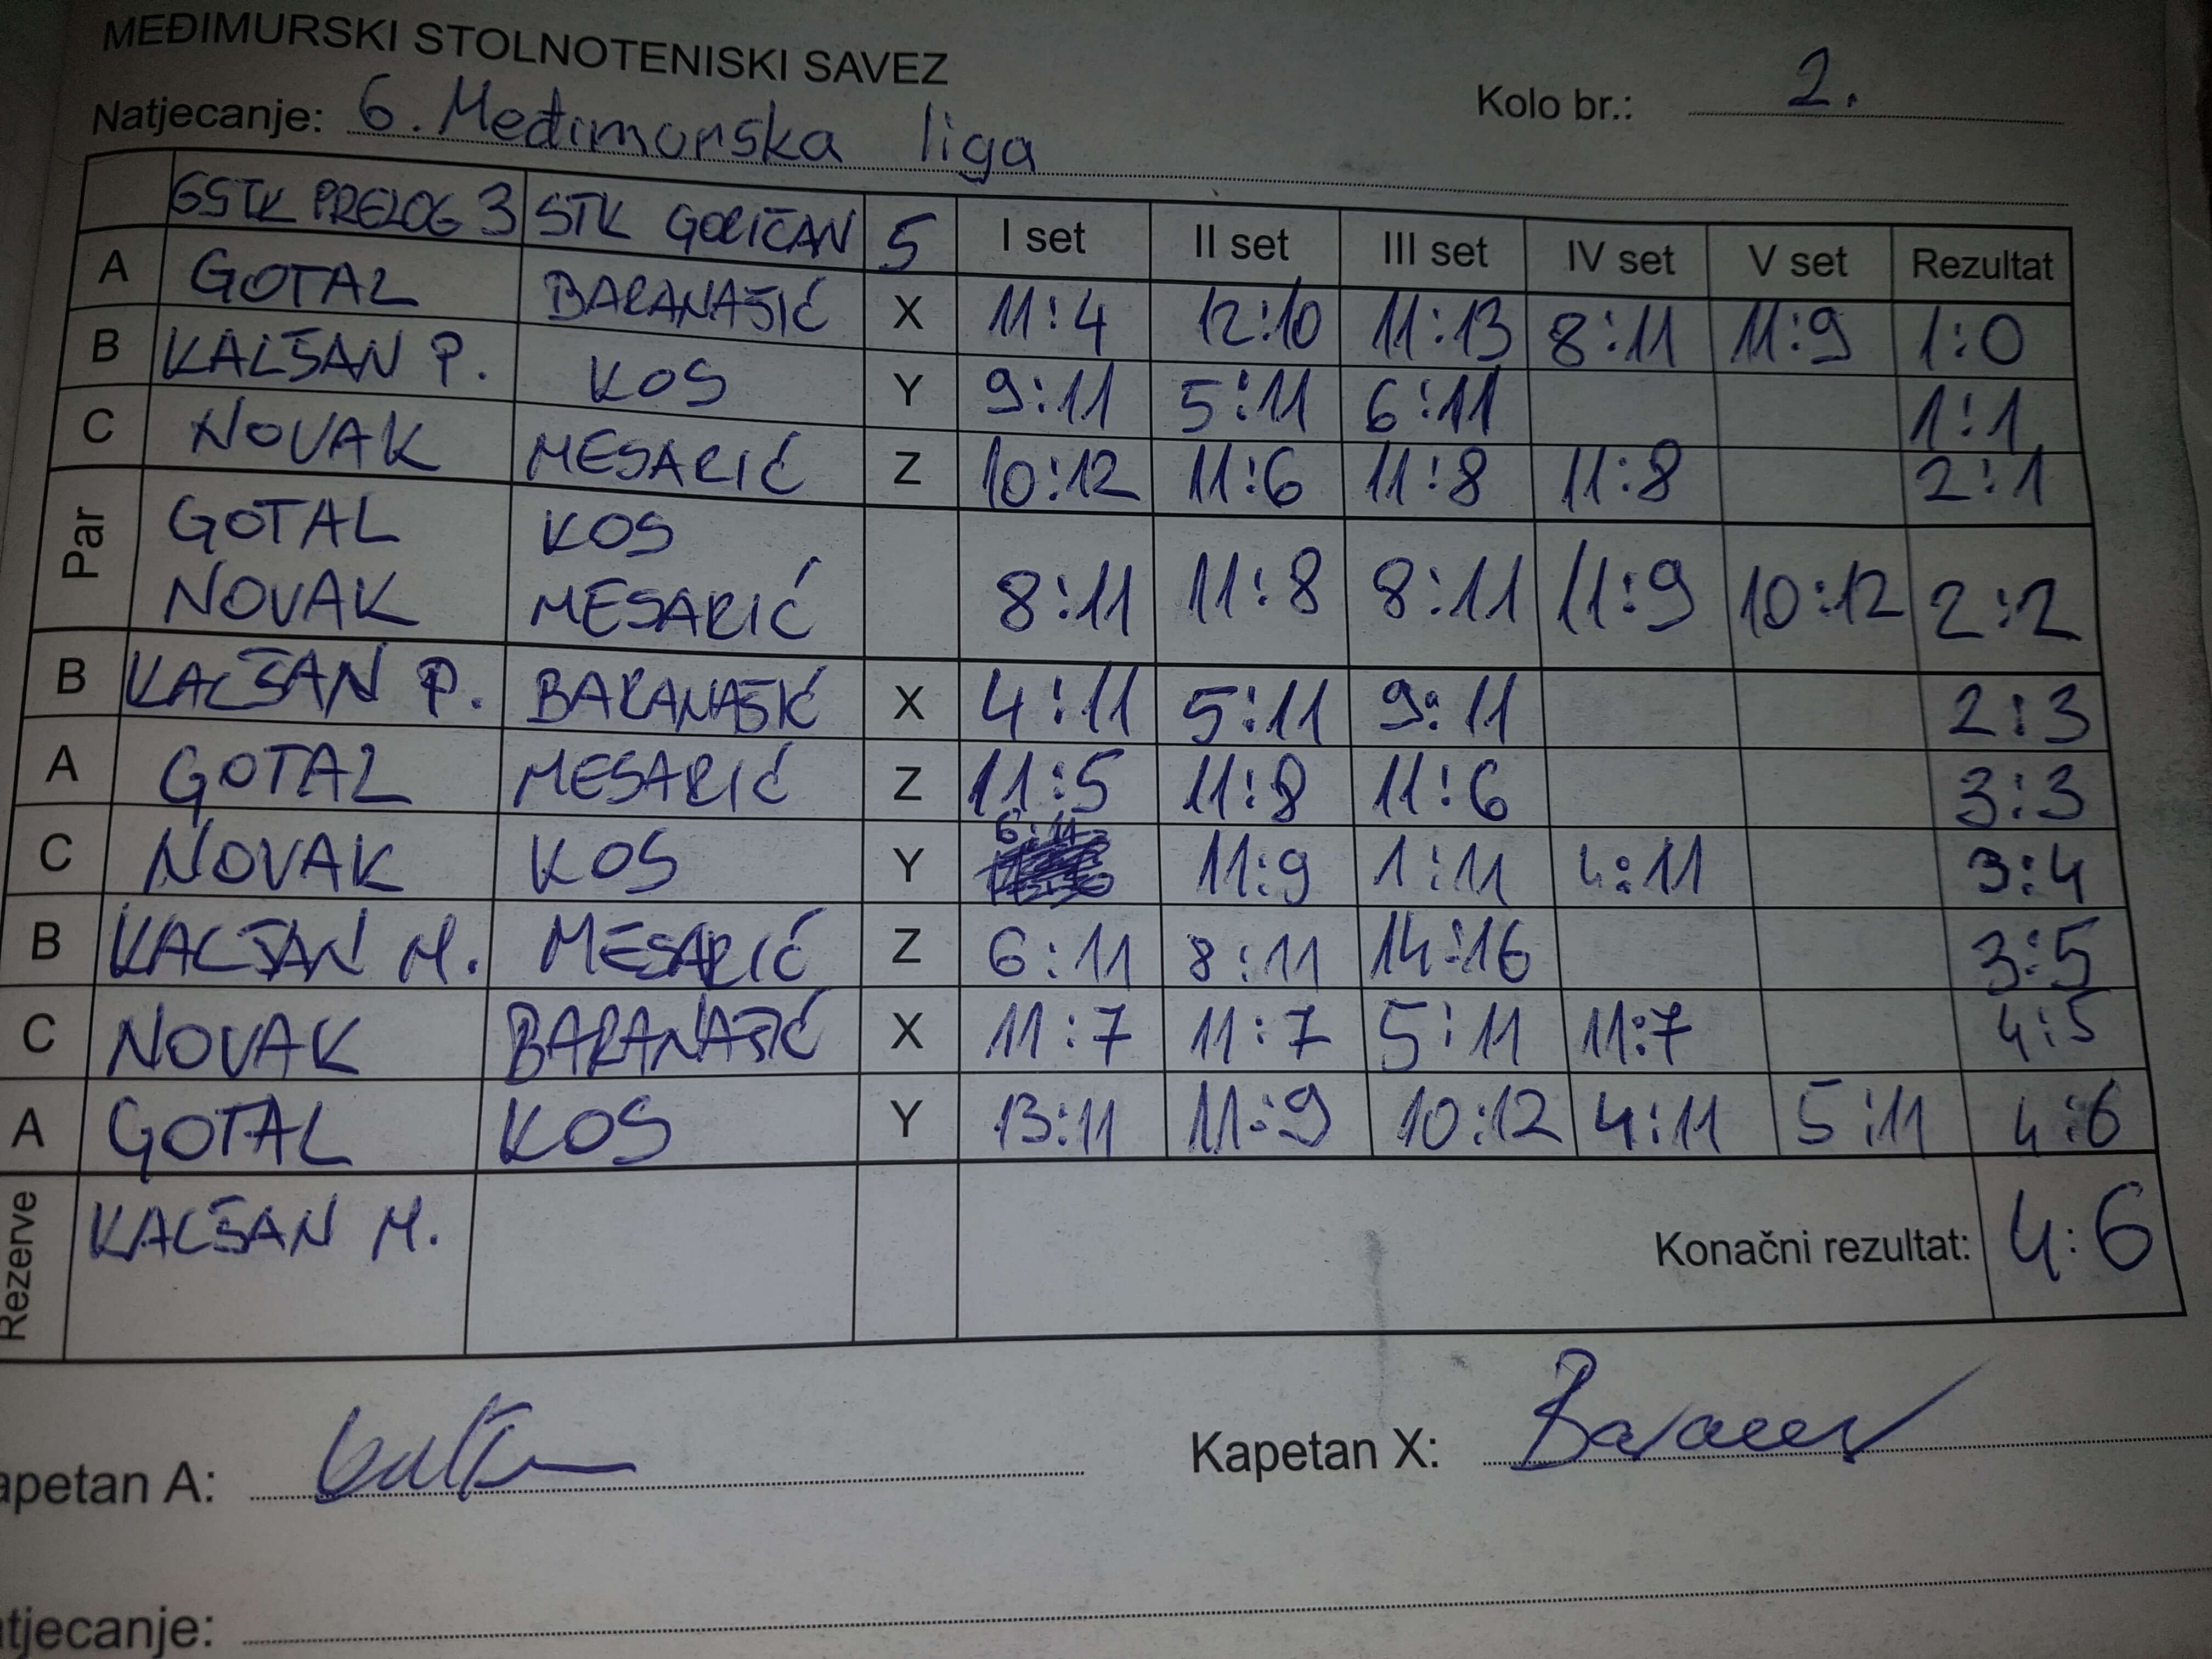 MEĐIMURSKI STOLNOTENISKI SAVEZ
Natjecanje: 6. Međimurska liga
Kolo br.: 2.
GSTK PRELOG 3 STK GORIČAN 5 I set II set III set IV set V set Rezultat
A GOTAL BARANAŠIĆ X 11:4 12:10 11:13 8:11 11:9 1:0
B KALŠAN P. KOS Y 9:11 5:11 6:11 1:1
C NOVAK MESARIĆ Z 10:12 11:6 11:8 11:8 2:1
Par GOTAL KOS
NOVAK MESARIĆ 8:11 11:8 8:11 11:9 10:12 2:2
B KALŠAN P. BARANAŠIĆ X 4:11 5:11 9:11 2:3
A GOTAL MESARIĆ Z 11:5 11:8 11:6 3:3
C NOVAK KOS Y 6:11 11:9 1:11 4:11 3:4
B KALŠAN M. MESARIĆ Z 6:11 8:11 14:16 3:5
C NOVAK BARANAŠIĆ X 11:7 11:7 5:11 11:7 4:5
A GOTAL KOS Y 13:11 11:9 10:12 4:11 5:11 4:6
Rezerve KALŠAN M. Konačni rezultat: 4:6
apetan A:
Kapetan X:
tjecanje: